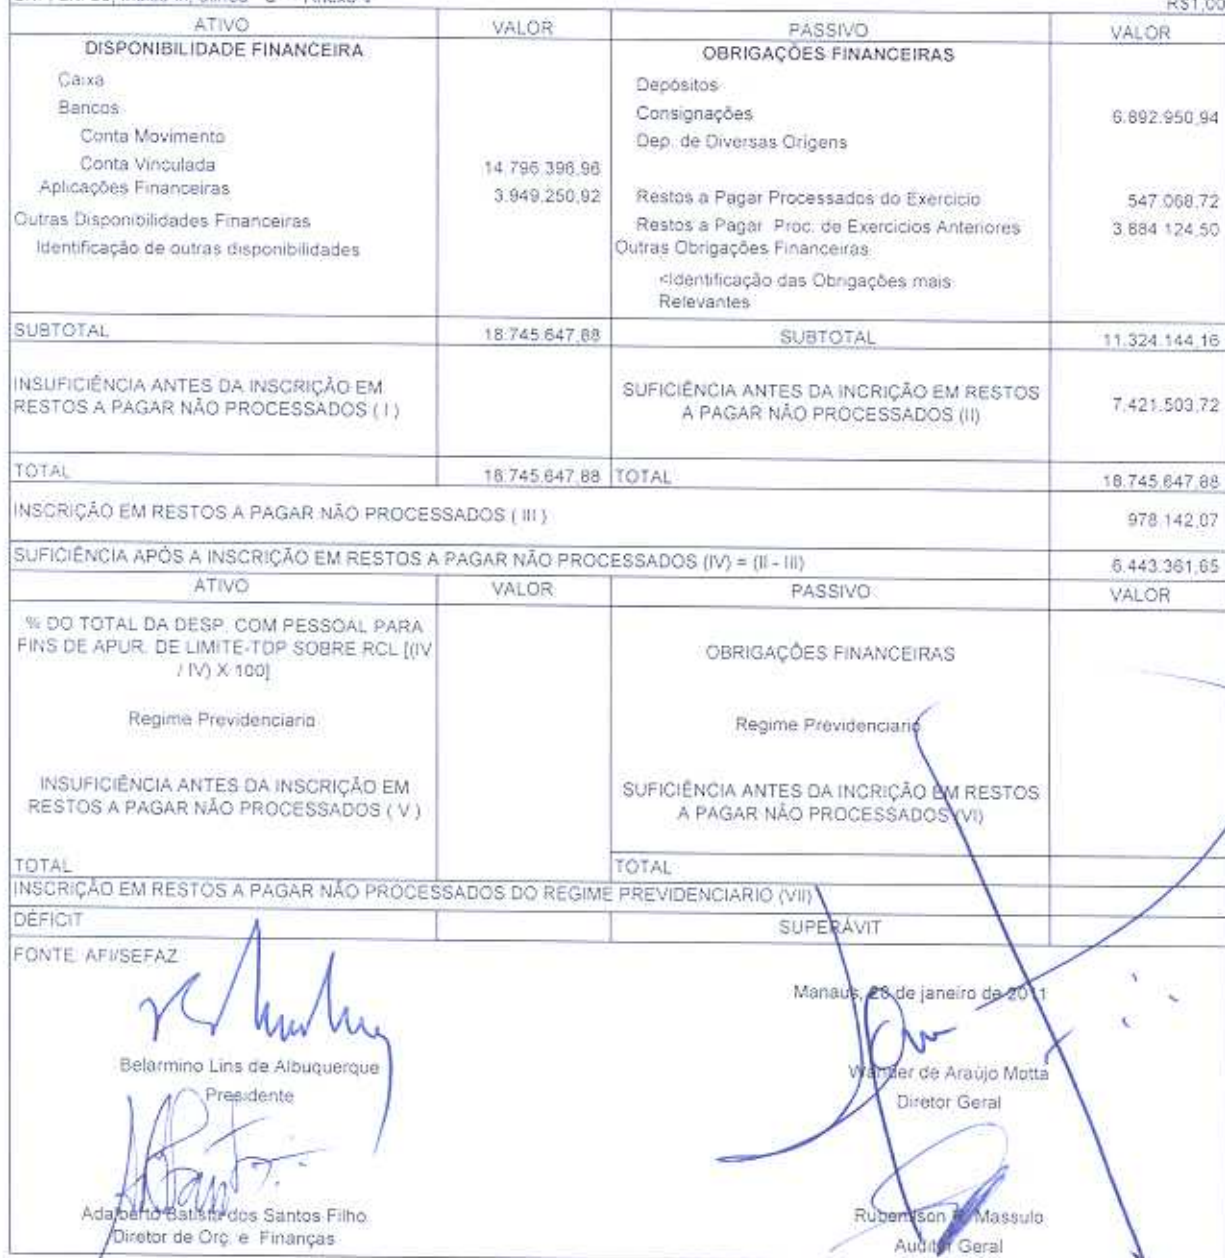 R$1,00
ATIVO VALOR PASSIVO VALOR
DISPONIBILIDADE FINANCEIRA OBRIGAÇÕES FINANCEIRAS
Caixa Depósitos
Bancos Consignações 6.892.950,94
Conta Movimento Dep. de Diversas Origens
Conta Vinculada 14.796.396,96
Aplicações Financeiras 3.949.250,92 Restos a Pagar Processados do Exercicio 547.068,72
Outras Disponibilidades Financeiras Restos a Pagar Proc. de Exercicios Anteriores 3.884.124,50
Identificação de outras disponibilidades Outras Obrigações Financeiras
<Identificação das Obrigações mais
Relevantes
SUBTOTAL 18.745.647,88 SUBTOTAL 11.324.144,16
INSUFICIÊNCIA ANTES DA INSCRIÇÃO EM
RESTOS A PAGAR NÃO PROCESSADOS ( I )
SUFICIÊNCIA ANTES DA INCRIÇÃO EM RESTOS
A PAGAR NÃO PROCESSADOS (II) 7.421.503,72
TOTAL 18.745.647,88 TOTAL 18.745.647,88
INSCRIÇÃO EM RESTOS A PAGAR NÃO PROCESSADOS ( III ) 978.142,07
SUFICIÊNCIA APÓS A INSCRIÇÃO EM RESTOS A PAGAR NÃO PROCESSADOS (IV) = (II - III) 6.443.361,65
ATIVO VALOR PASSIVO VALOR
% DO TOTAL DA DESP. COM PESSOAL PARA
FINS DE APUR. DE LIMITE-TDP SOBRE RCL [(IV
/ IV) X 100]
OBRIGAÇÕES FINANCEIRAS
Regime Previdenciario Regime Previdenciario
INSUFICIÊNCIA ANTES DA INSCRIÇÃO EM
RESTOS A PAGAR NÃO PROCESSADOS ( V )
SUFICIÊNCIA ANTES DA INCRIÇÃO EM RESTOS
A PAGAR NÃO PROCESSADOS (VI)
TOTAL TOTAL
INSCRIÇÃO EM RESTOS A PAGAR NÃO PROCESSADOS DO REGIME PREVIDENCIARIO (VII)
DÉFICIT SUPERÁVIT
FONTE: AFI/SEFAZ
Manaus, 28 de janeiro de 2011
Belarmino Lins de Albuquerque
Presidente
Wander de Araújo Motta
Diretor Geral
Adalberto Batista dos Santos Filho
Diretor de Orç. e Finanças
Massulo
Auditor Geral